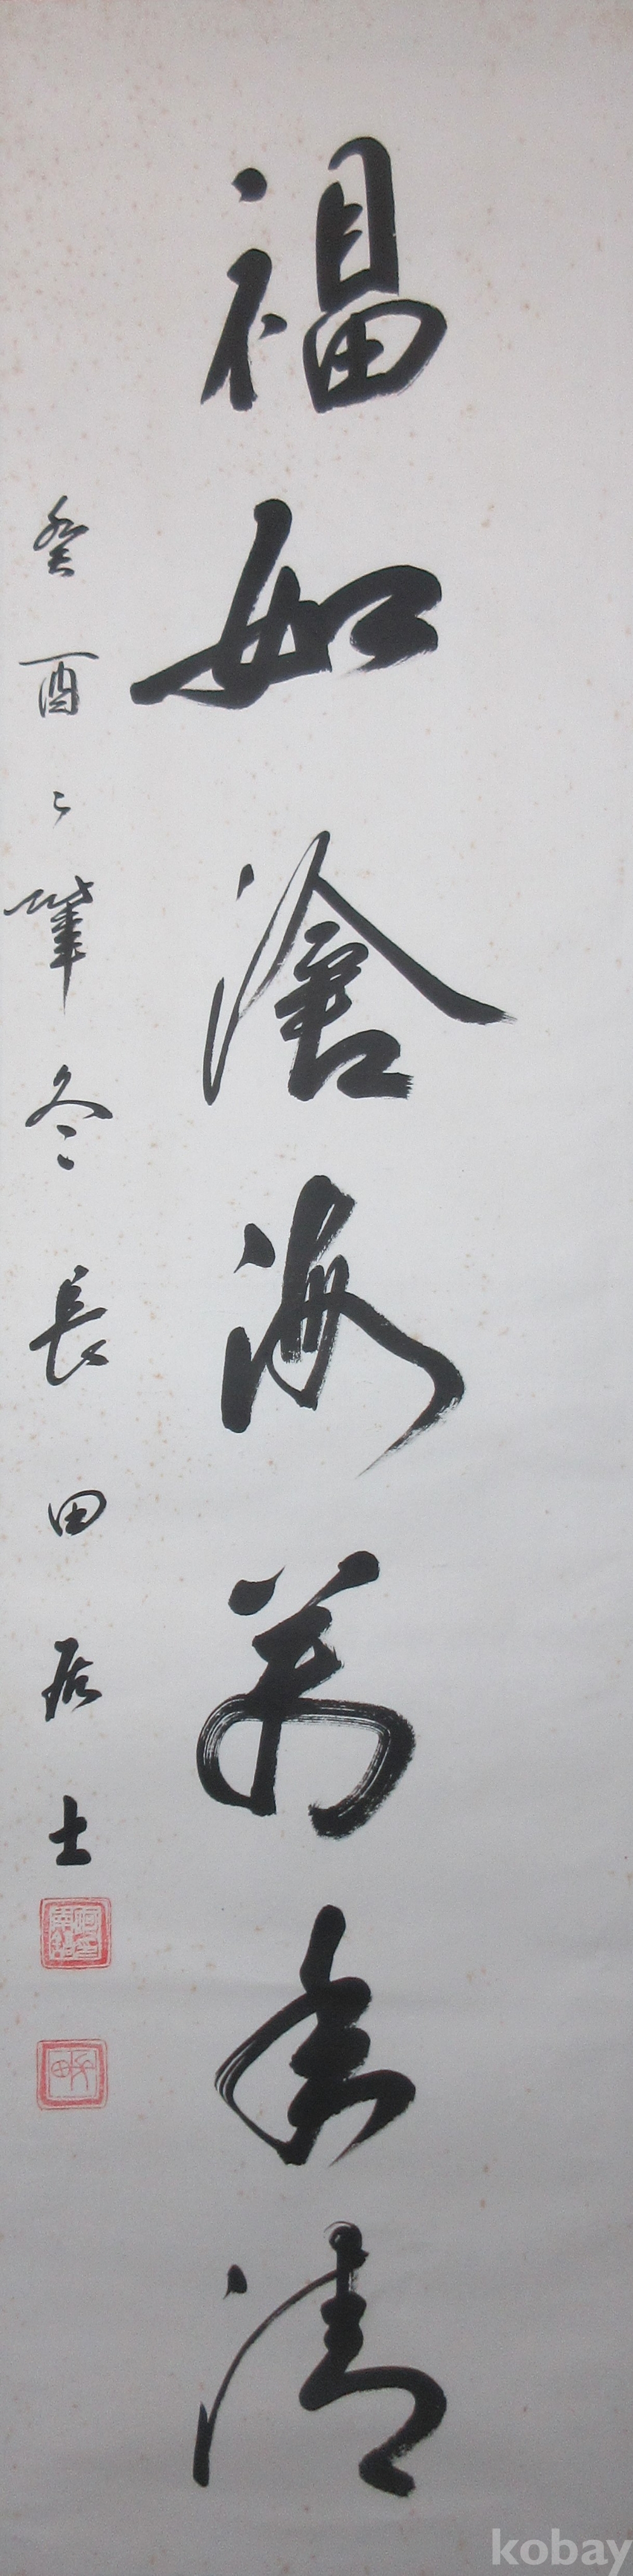 福如滄海萬年清
癸酉之肇冬長田居士
kobay